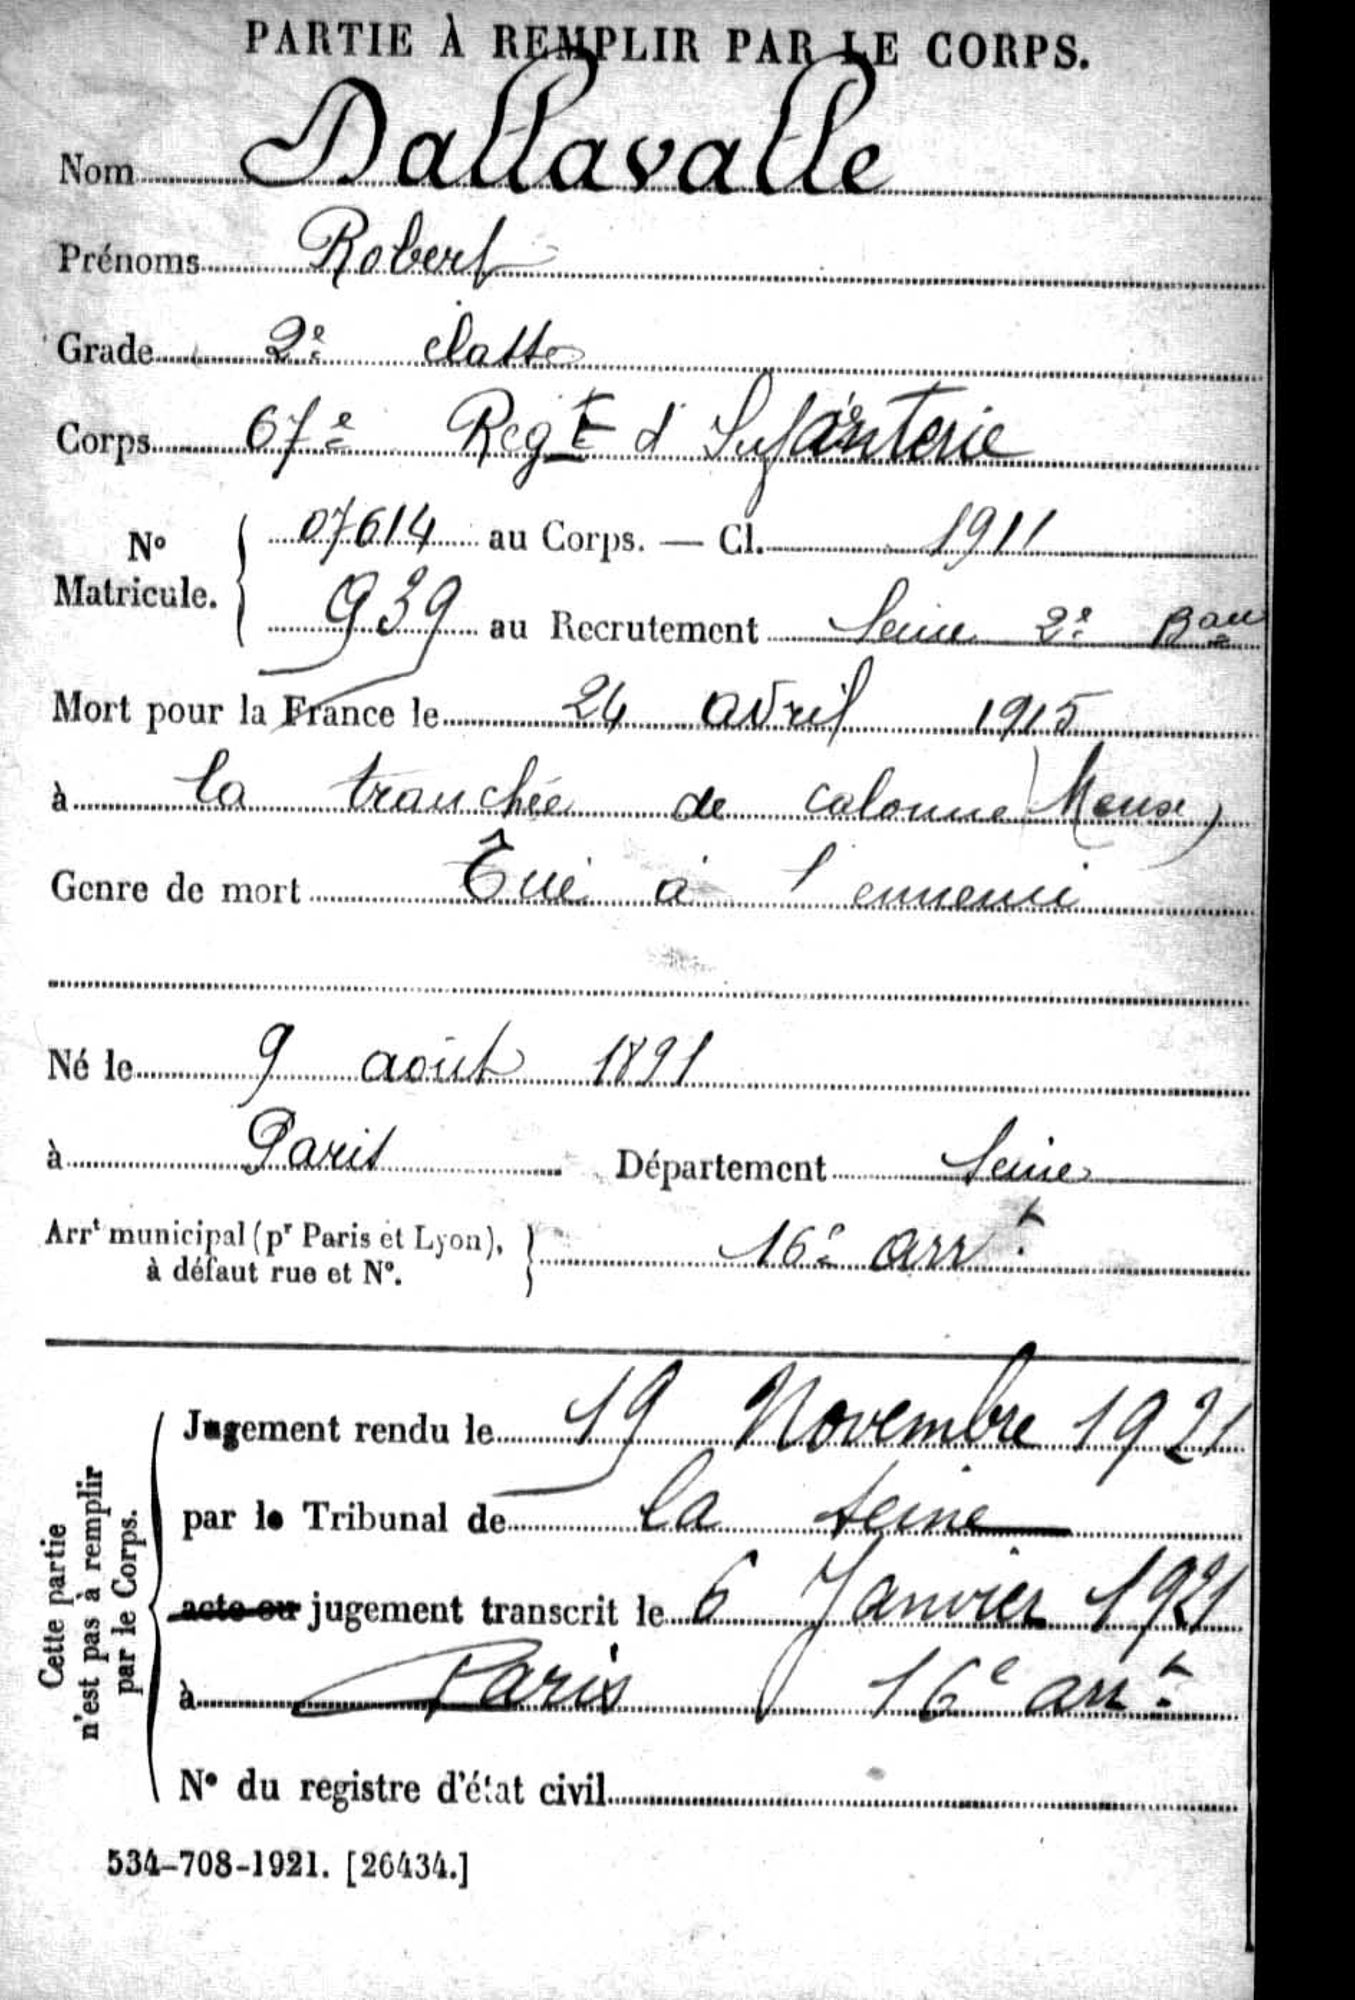 PARTIE À REMPLIR PAR LE CORPS.
Nom Dallavalle
Prénoms Robert
Grade 2e classe
Corps 67e Regt d'Infanterie
No Matricule. { 07614 au Corps. — Cl. 1911
939 au Recrutement Seine 2e Bau
Mort pour la France le 24 avril 1915
à la tranchée de calonne (Meuse)
Genre de mort Tué à l'ennemi
Né le 9 août 1891
à Paris Département Seine
Arrt municipal (pr Paris et Lyon), à défaut rue et No. } 16e arrt
Cette partie n'est pas à remplir par le Corps.
Jugement rendu le 19 Novembre 1921
par le Tribunal de la Seine
acte ou jugement transcrit le 6 Janvier 1921
à Paris 16e arrt
No du registre d'état civil
534-708-1921. [26434.]